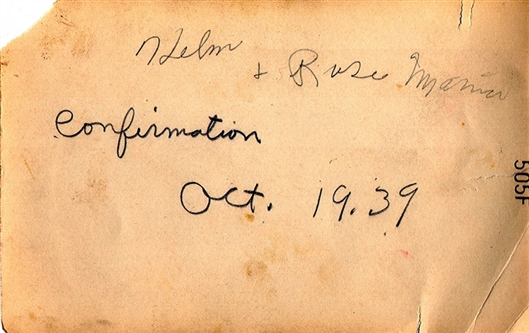 Helm
& Rose Marie
Confirmation
Oct. 19.39
505F